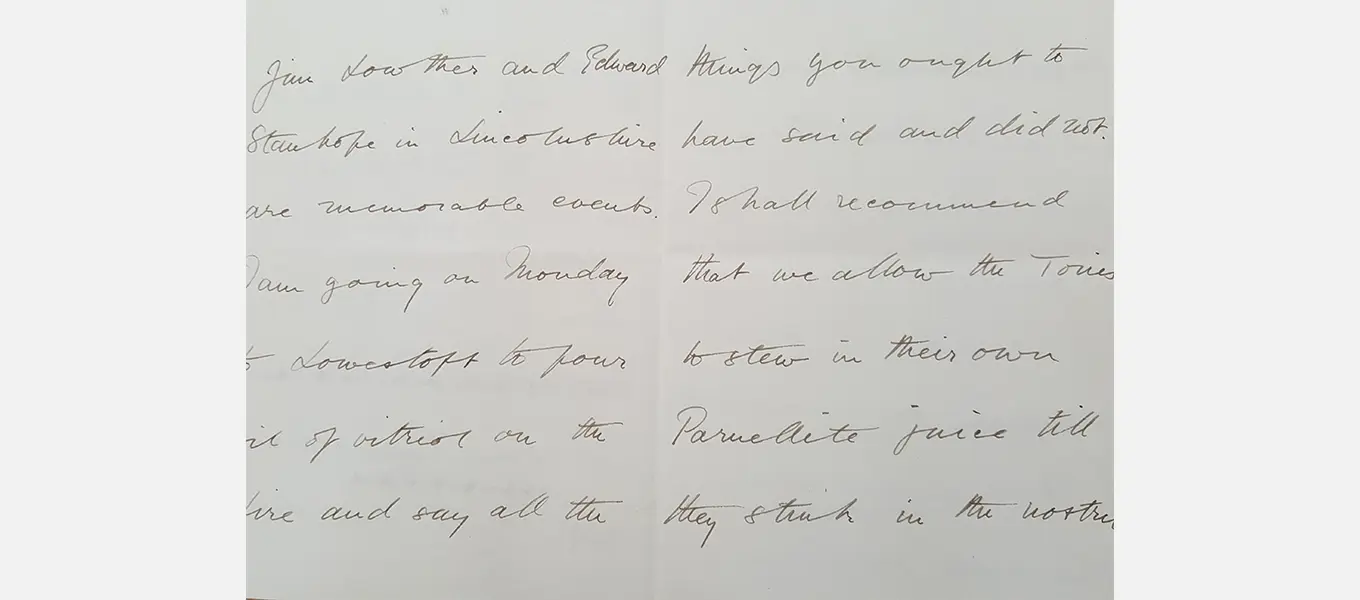 Jim Lowther and Edward
Stanhope in Lincolnshire
are memorable events.
I am going on Monday
to Lowestoft to pour
oil of vitriol on the
fire and say all the
things you ought to
have said and did not.
I shall recommend
that we allow the Tories
to stew in their own
Parnellite juice till
they stink in the